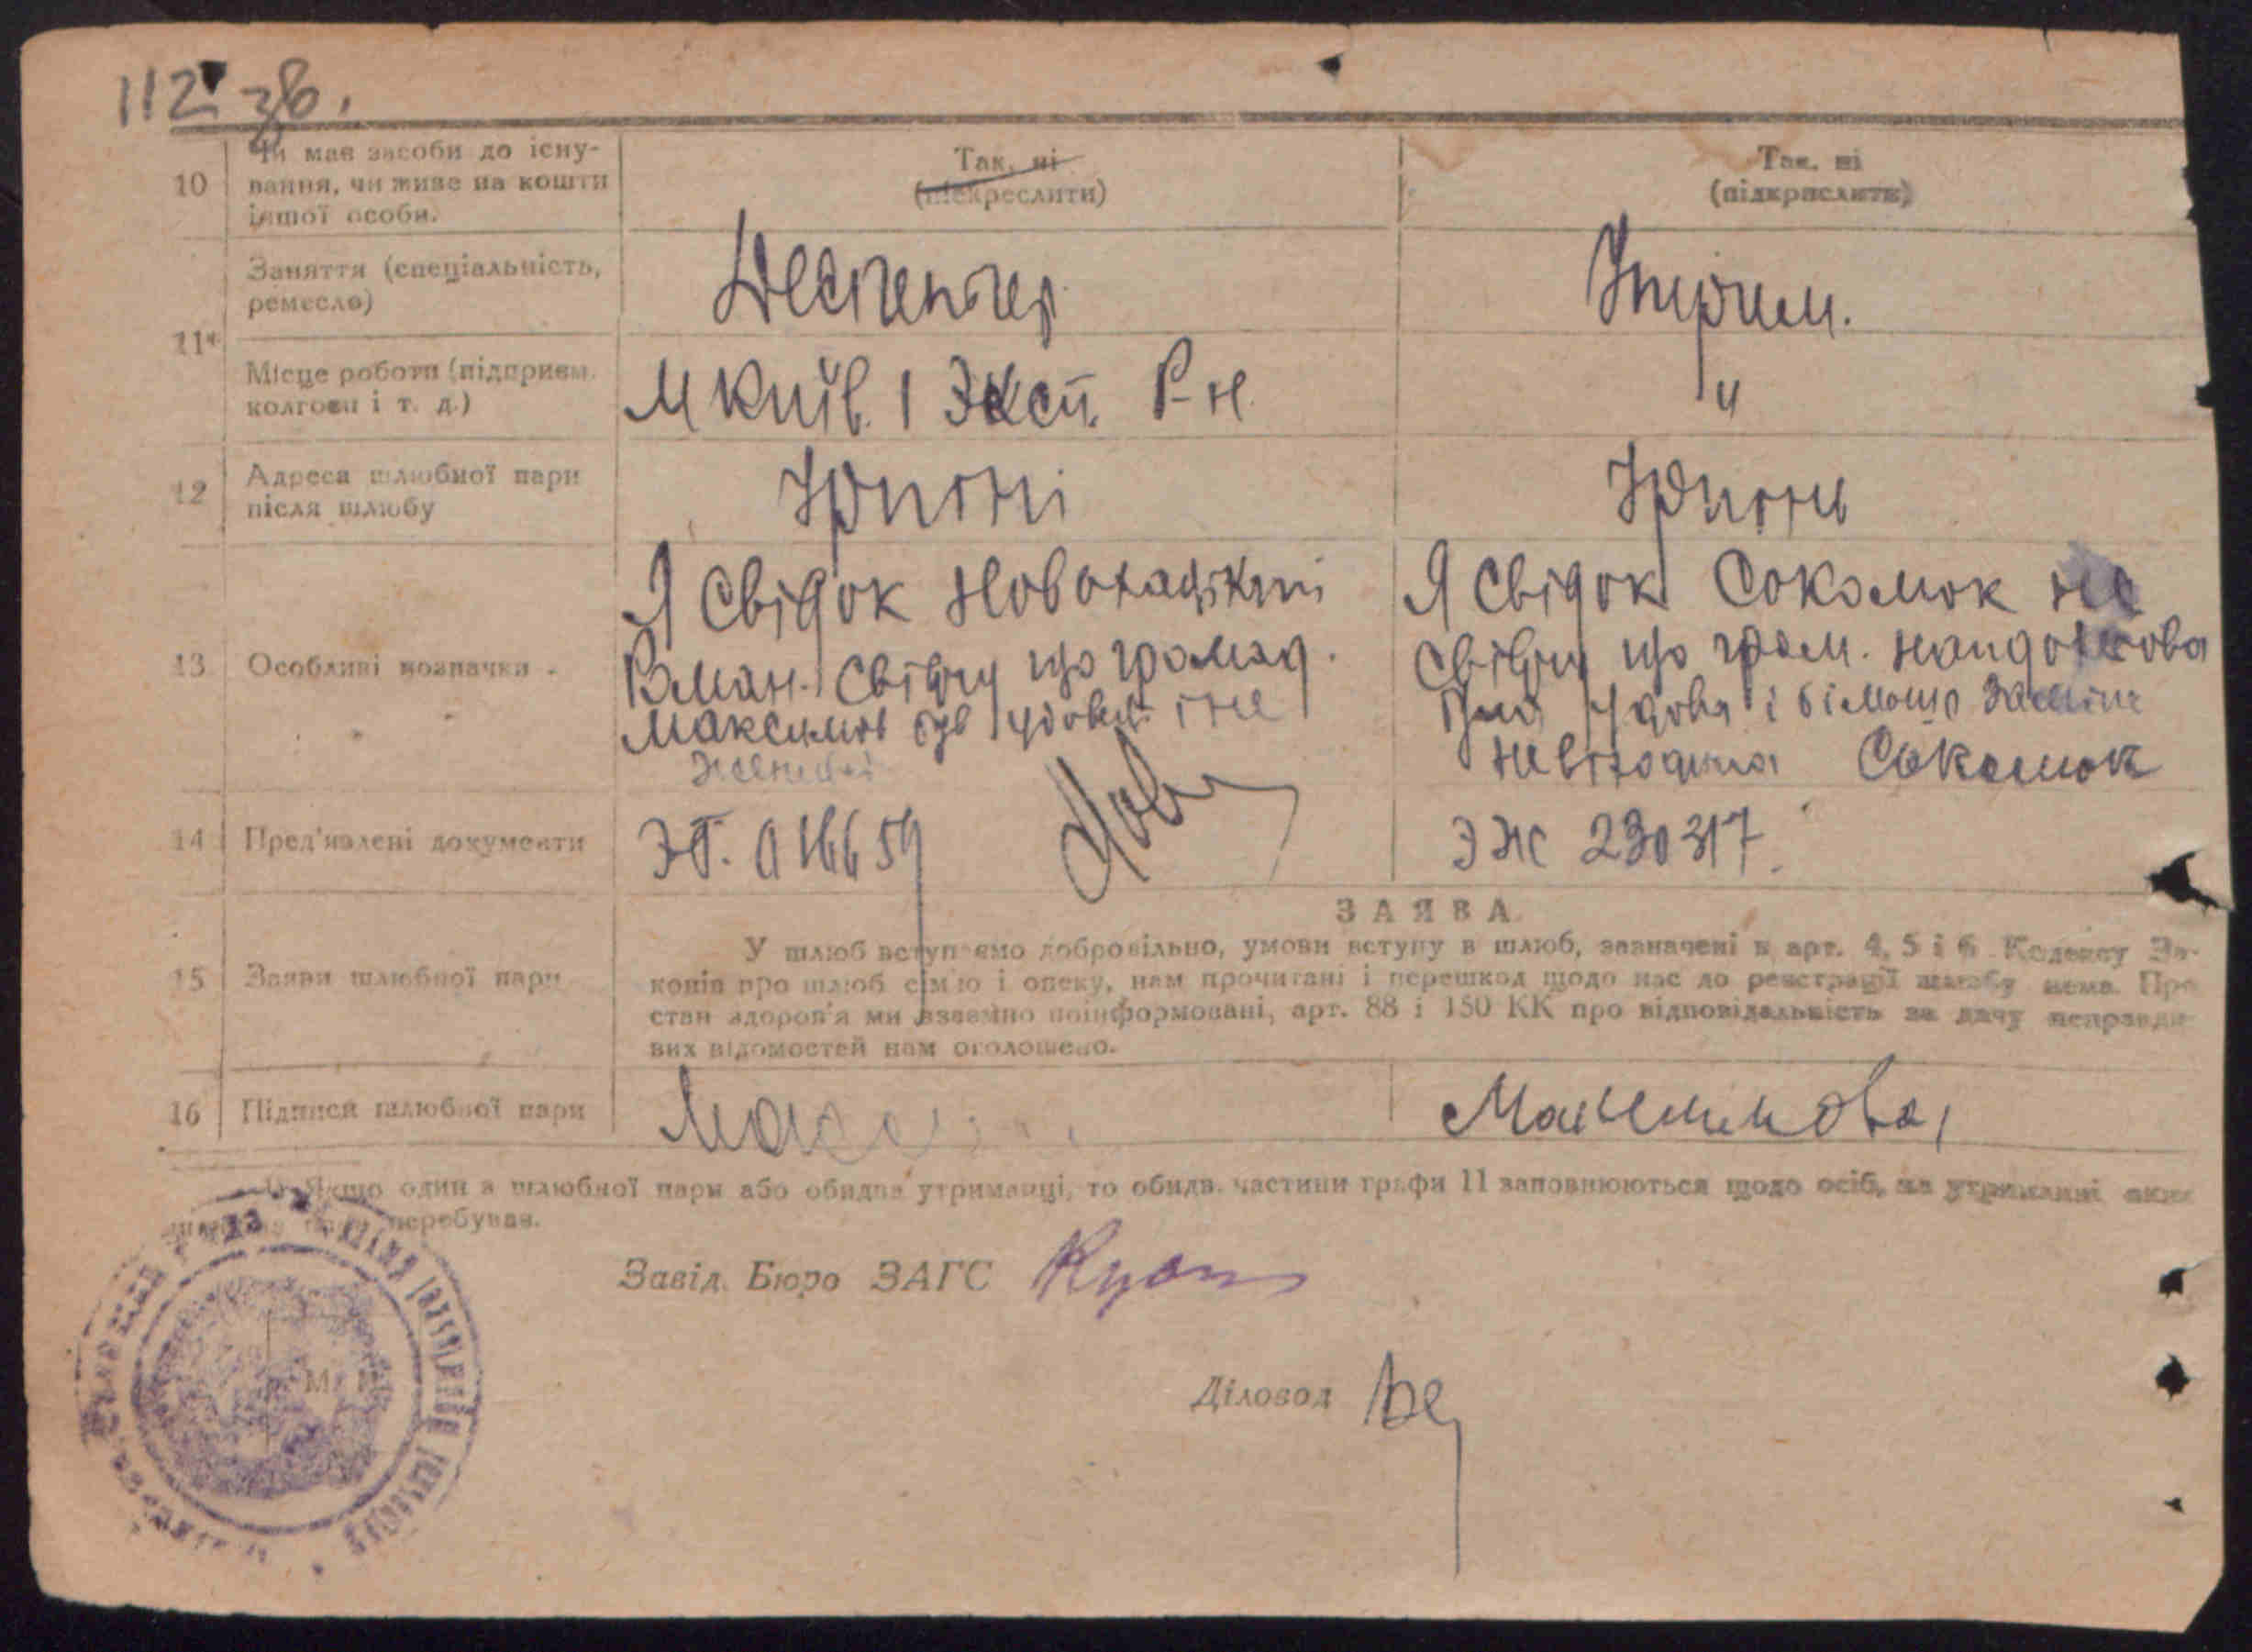 112 зв.
10
Чи має засоби до існу-
вання, чи живе на кошти
іншої особи.
Так, ні
(підкреслити)
Так, ні
(підкреслити)
11*
Заняття (спеціальність,
ремесло)
Десятник
Утрим.
Місце роботи (підприєм.
колгосп і т. д.)
М Київ. 1 Эксп. Р-н.
"
12
Адреса шлюбної пари
після шлюбу
Ірпіні
Ірпінь
13
Особливі позначки
Я свідок
свідчу що громад.
Максимов був удовець і не
Я свідок Сокомок
свідчу що гром.
удова і більшо
Сокомок
14
Пред'явлені документи
016659
ЭЖ 230317.
15
Заяви шлюбної пари
ЗАЯВА
У шлюб вступаємо добровільно, умови вступу в шлюб, зазначені в арт. 4, 5 і 6 Кодексу За-
конів про шлюб сім'ю і опеку, нам прочитані і перешкод щодо нас до реєстрації шлюбу нема. Про
стан здоров'я ми взаємно поінформовані, арт. 88 і 150 КК про відповідальність за дачу неправди-
вих відомостей нам оголошено.
16
Підписи шлюбної пари
Максимова
Якщо один з шлюбної пари або обидва утриманці, то обидв. частини графи 11 заповнюються щодо осіб, на утриманні яких
перебував.
Завід. Бюро ЗАГС
Діловод
М.